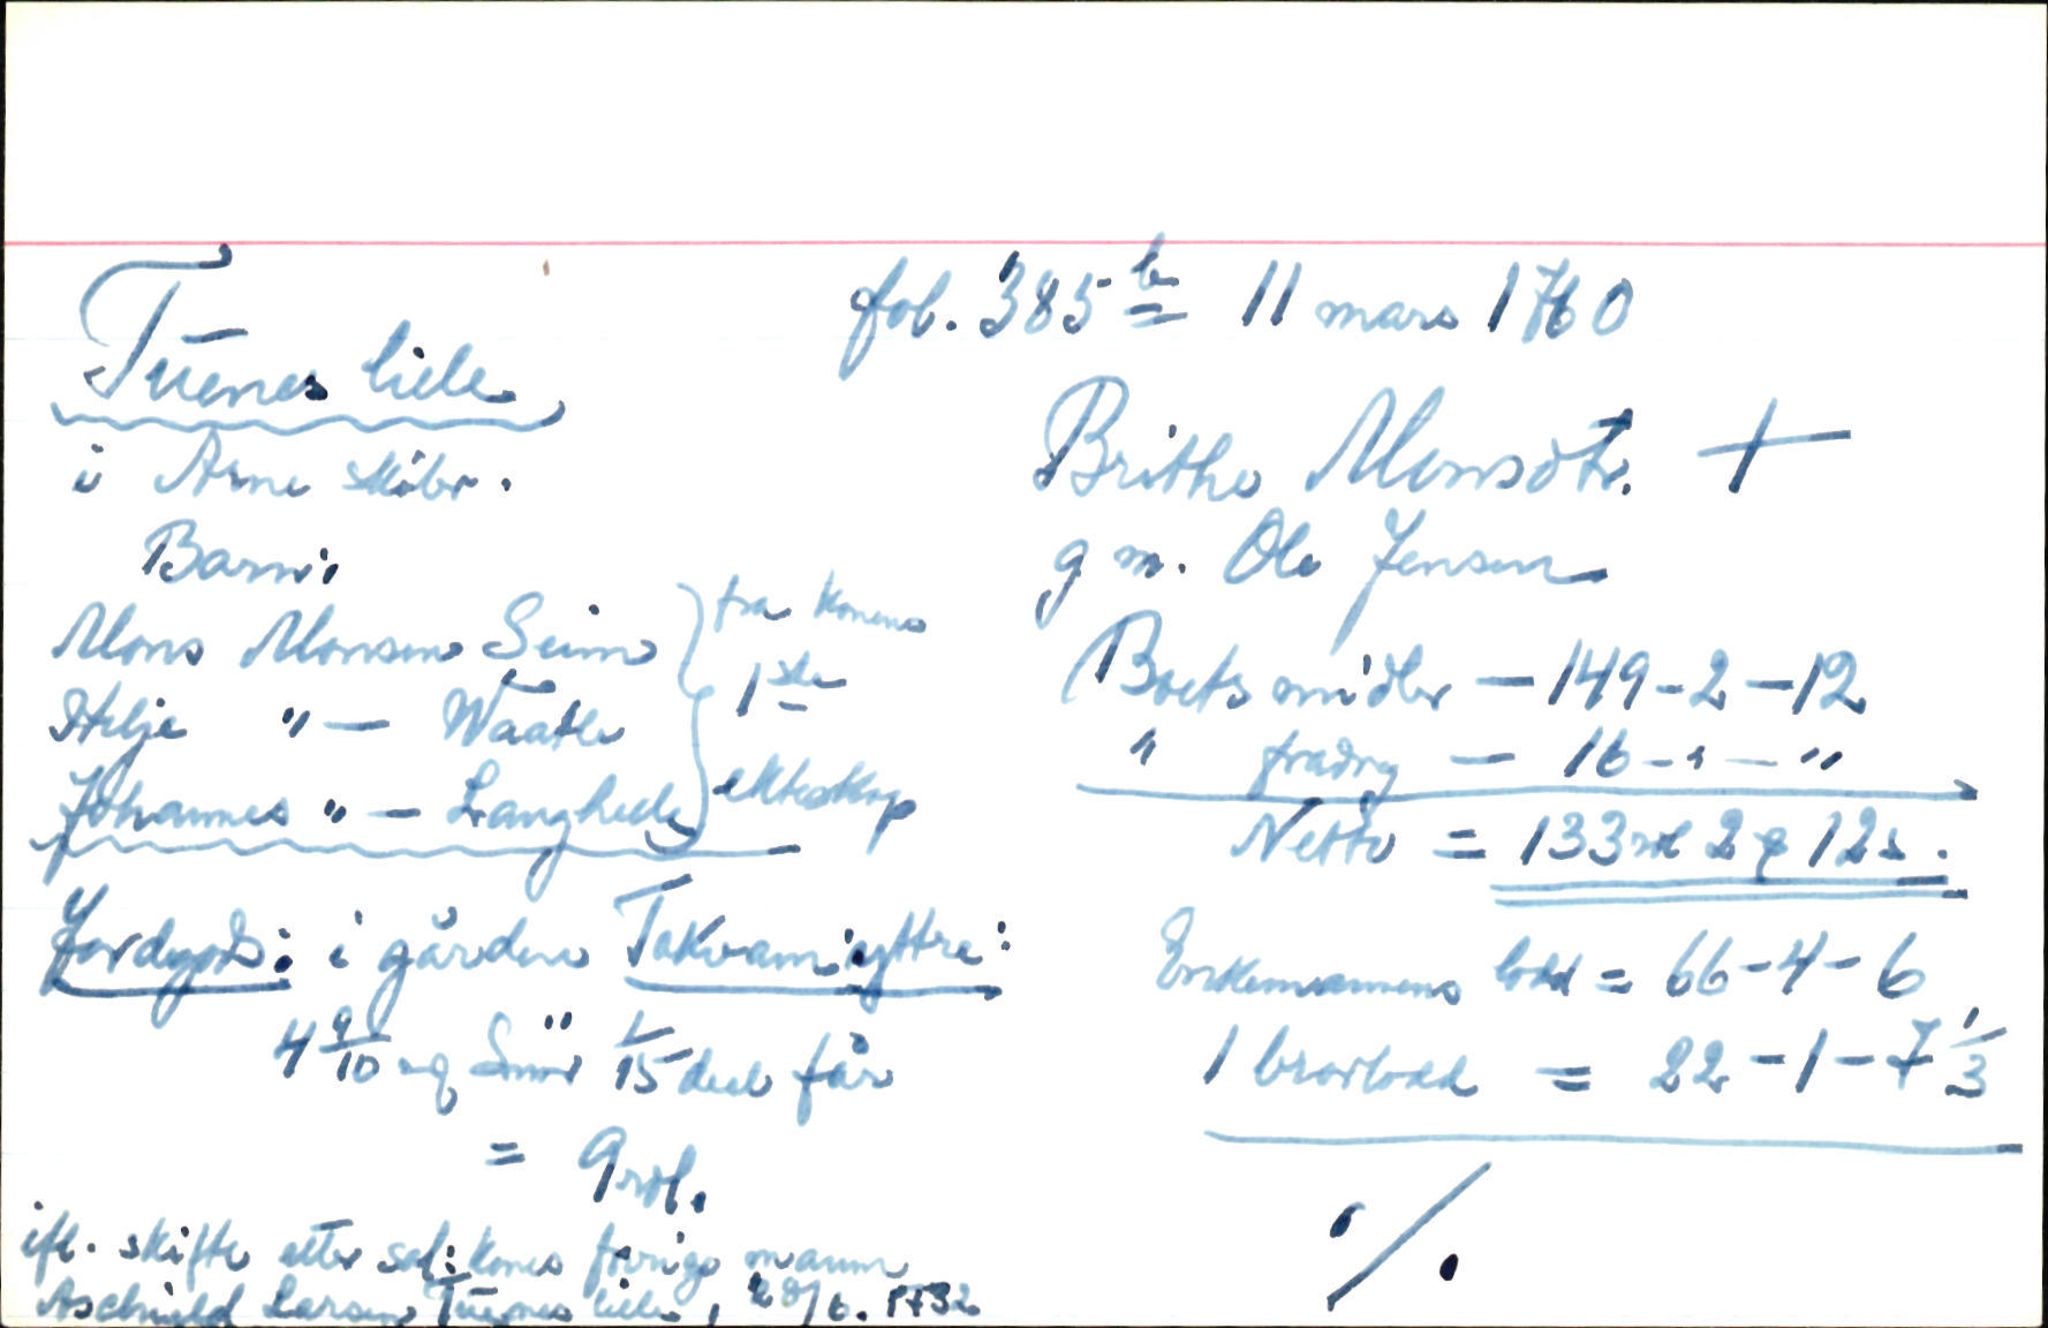 fol. 385 b 11 mars 1760
Tuenes liele
i Arne skibr.
Barn:
Mons Monsen Seim
Helje " — Waatle
Johannes " — Langhede
fra konens
1ste
ekteskap
Jordgods: i gården Takvam yttre:
4 9/10 mg Smør 1/15 deel får
= 9 rdl.
ifl. skifte etter sal: kones forrige mann
Aschield Larsen Tuenes liele, 28/6. 1732
Brithe Monsdtr. +
g m. Ole Jensen
Boets midler — 149 - 2 - 12
" fradrag — 16 - " - "
Netto = 133 rd 2 q 12 s.
Enkemannens lodd = 66 - 4 - 6
1 brorlodd = 22 - 1 - 7 1/3
./.